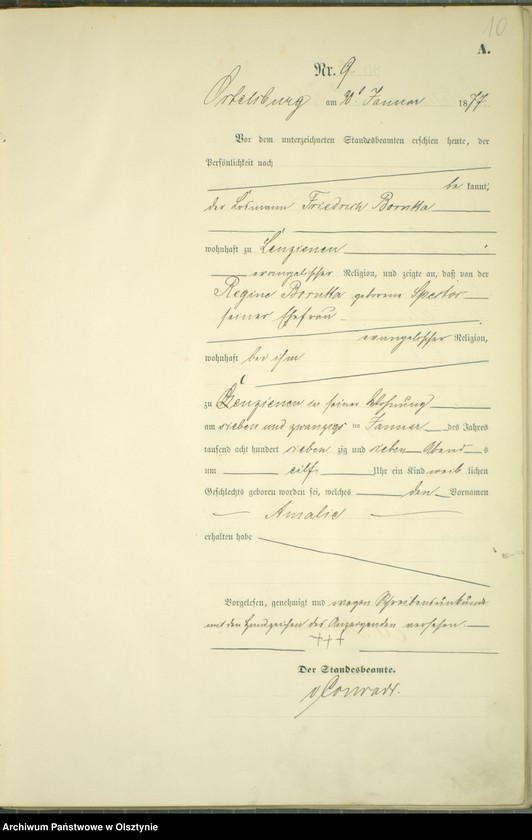 10
A.
Nr. 9
Ortelsburg am Januar 1877
Vor dem unterzeichneten Standesbeamten erschien heute, der
Persönlichkeit nach
be kannt,
der Losmann Friedrich Borutta
wohnhaft zu Lenzienen
evangelischer Religion, und zeigte an, daß von der
Regine Borutta geborene
seiner Ehefrau
evangelischer Religion,
wohnhaft bei ihm
zu Lenzienen in seiner Wohnung
am sieben und zwanzigs ten Januar des Jahres
tausend acht hundert sieben zig und sieben Abend s
um eilf Uhr ein Kind weib lichen
Geschlechts geboren worden sei, welches den Vornamen
Amalie
erhalten habe
Vorgelesen, genehmigt und wegen Schreibensunkunde
mit den Handzeichen des Anzeigenden versehen.
+++
Der Standesbeamte.
v Conradt.
Archiwum Państwowe w Olsztynie